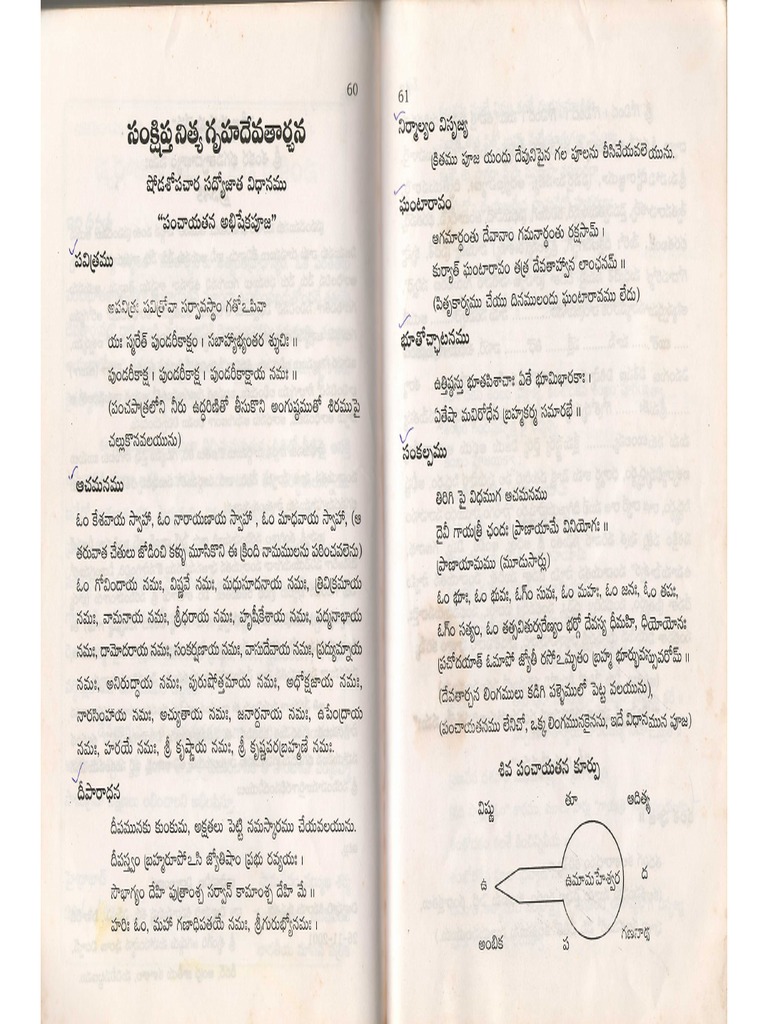 60
సంక్షిప్త నిత్య గృహదేవతార్చన
షోడశోపచార సద్యోజాత విధానము
"పంచాయతన అభిషేకపూజ"
పవిత్రము
అపవిత్రః పవిత్రోవా సర్వావస్థాం గతోఽపివా
యః స్మరేత్ పుండరీకాక్షం । సబాహ్యాభ్యంతర శ్శుచిః ॥
పుండరీకాక్ష । పుండరీకాక్ష । పుండరీకాక్షాయ నమః ॥
(పంచపాత్రలోని నీరు ఉద్ధరిణితో తీసుకొని అంగుష్ఠముతో శిరముపై
చల్లుకొనవలయును)
ఆచమనము
ఓం కేశవాయ స్వాహా, ఓం నారాయణాయ స్వాహా , ఓం మాధవాయ స్వాహా, (ఆ
తరువాత చేతులు జోడించి కళ్ళు మూసికొని ఈ క్రింది నామములను పఠించవలెను)
ఓం గోవిందాయ నమః, విష్ణవే నమః, మధుసూదనాయ నమః, త్రివిక్రమాయ
నమః, వామనాయ నమః, శ్రీధరాయ నమః, హృషీకేశాయ నమః, పద్మనాభాయ
నమః, దామోదరాయ నమః, సంకర్షణాయ నమః, వాసుదేవాయ నమః, ప్రద్యుమ్నాయ
నమః, అనిరుద్ధాయ నమః, పురుషోత్తమాయ నమః, అధోక్షజాయ నమః,
నారసింహాయ నమః, అచ్యుతాయ నమః, జనార్దనాయ నమః, ఉపేంద్రాయ
నమః, హరయే నమః, శ్రీ కృష్ణాయ నమః, శ్రీ కృష్ణపరబ్రహ్మణే నమః.
దీపారాధన
దీపమునకు కుంకుమ, అక్షతలు పెట్టి నమస్కారము చేయవలయును.
దీపస్త్వం బ్రహ్మరూపోఽసి జ్యోతిషాం ప్రభు రవ్యయః ।
సౌభాగ్యం దేహి పుత్రాంశ్చ సర్వాన్ కామాంశ్చ దేహి మే ॥
హరిః ఓం, మహా గణాధిపతయే నమః, శ్రీగురుభ్యోనమః ।
61
నిర్మాల్యం విసృజ్య
క్రితము పూజ యందు దేవునిపైన గల పూలను తీసివేయవలెయును.
ఘంటారావం
ఆగమార్థంతు దేవానాం గమనార్థంతు రక్షసామ్ ।
కుర్యాత్ ఘంటారావం తత్ర దేవతాహ్వాన లాంఛనమ్ ॥
(పితృకార్యము చేయు దినములందు ఘంటారావము లేదు)
భూతోచ్ఛాటనము
ఉత్తిష్ఠన్తు భూతపిశాచాః ఏతే భూమిభారకాః ।
ఏతేషా మవిరోధేన బ్రహ్మకర్మ సమారభే ॥
సంకల్పము
తిరిగి పై విధముగ ఆచమనము
దైవీ గాయత్రీ ఛందః ప్రాణాయామే వినియోగః ॥
ప్రాణాయామము (మూడుసార్లు)
ఓం భూః, ఓం భువః, ఓగ్ం సువః, ఓం మహః, ఓం జనః, ఓం తపః,
ఓగ్ం సత్యం, ఓం తత్సవితుర్వరేణ్యం భర్గో దేవస్య ధీమహి, ధియోయోనః
ప్రచోదయాత్ ఓమాపో జ్యోతీ రసోఽమృతం బ్రహ్మ భూర్భువస్సువరోమ్ ॥
(దేవతార్చన లింగములు కడిగి పళ్ళెములో పెట్ట వలయును),
(పంచాయతనము లేనిచో, ఒక్క లింగమునకైనను, ఇదే విధానమున పూజ)
శివ పంచాయతన కూర్పు
విష్ణు తూ ఆదిత్య
ఉ ఉమామహేశ్వర ద
అంబిక ప గణనాథ